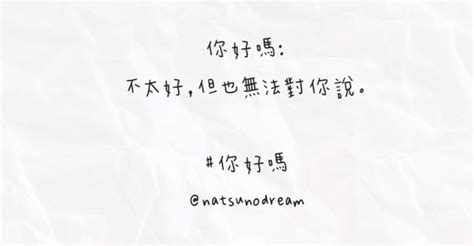 你好嗎:
不太好,但也無法對你說。
#你好嗎
@natsunodream